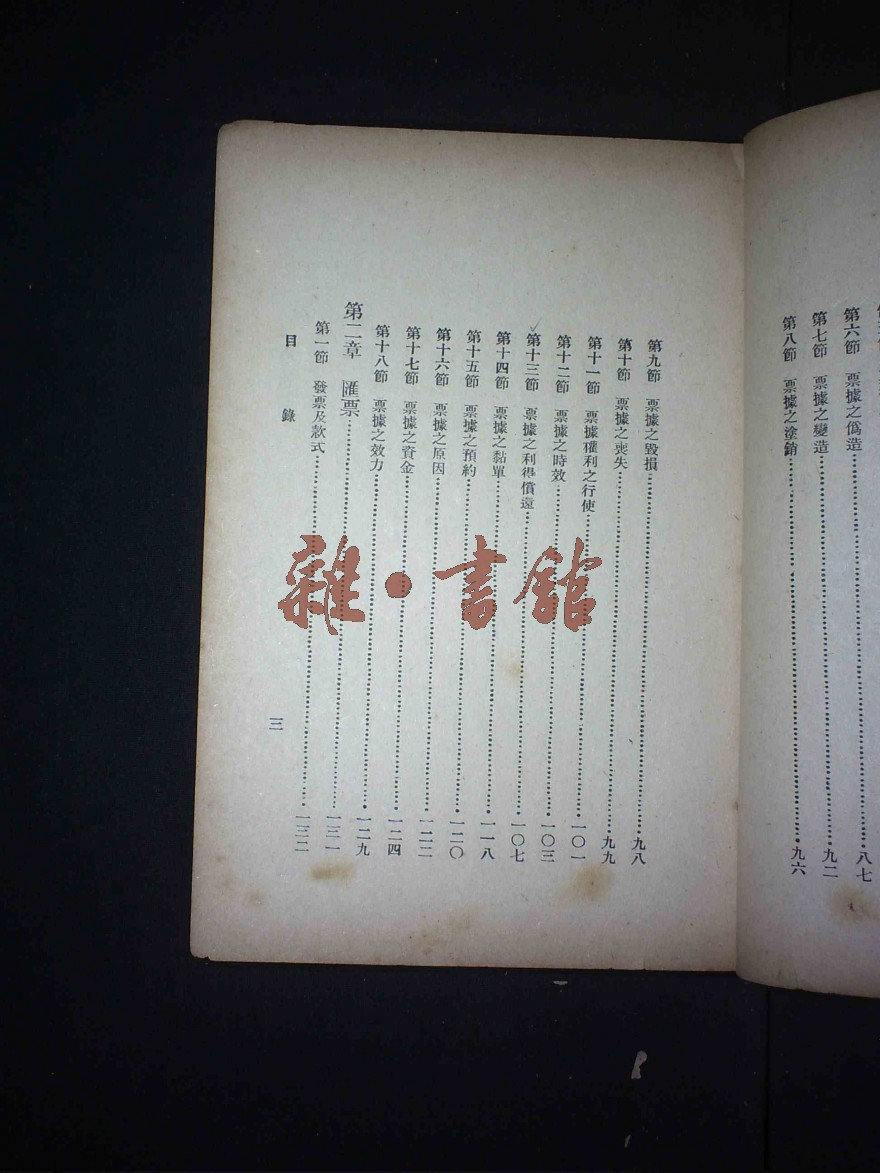 第六節　票據之僞造……八七
第七節　票據之變造……九二
第八節　票據之塗銷……九六
第九節　票據之毀損……九八
第十節　票據之喪失……九九
第十一節　票據權利之行使……一〇一
第十二節　票據之時效……一〇三
第十三節　票據之利得償還……一〇七
第十四節　票據之黏單……一一八
第十五節　票據之預約……一二〇
第十六節　票據之原因……一二二
第十七節　票據之資金……一二四
第十八節　票據之效力……一二九
第二章　匯票……一三一
第一節　發票及款式……一三二
目　錄
三
雜・書館